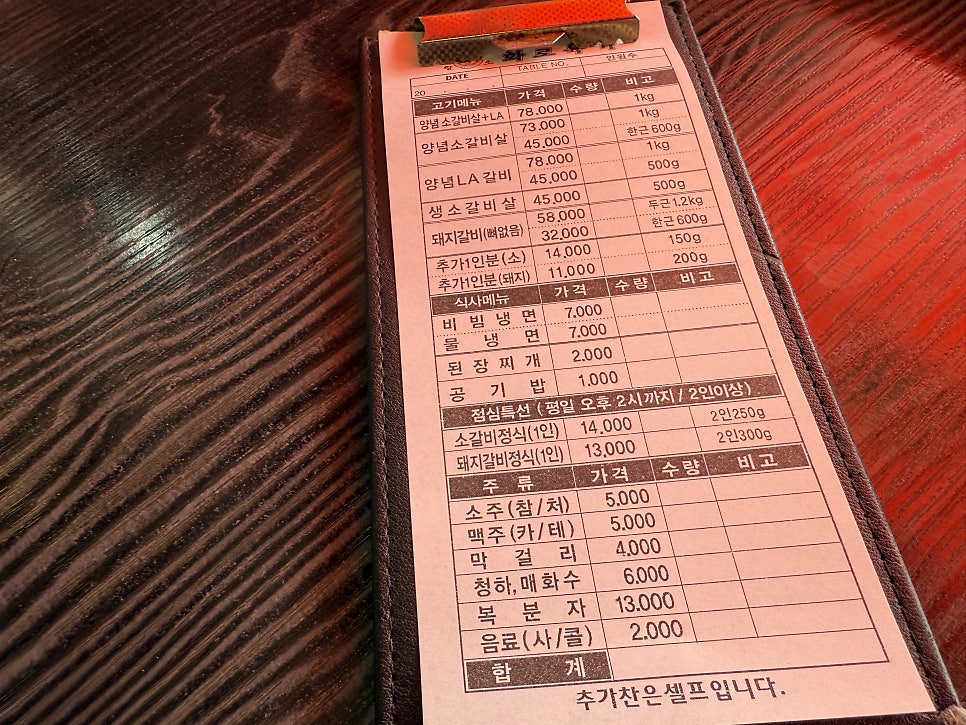 인원수
DATE TABLE NO.
20 . . .
고기메뉴 가격 수량 비고
양념소갈비살+LA 78.000 1kg
양념소갈비살 73.000 1kg
45.000 한근 600g
양념LA갈비 78.000 1kg
45.000 500g
생소갈비살 45.000 500g
돼지갈비(뼈없음) 58.000 두근 1.2kg
32.000 한근 600g
추가1인분(소) 14.000 150g
추가1인분(돼지) 11.000 200g
식사메뉴 가격 수량 비고
비빔냉면 7.000
물냉면 7.000
된장찌개 2.000
공기밥 1.000
점심특선 (평일 오후 2시까지 / 2인이상)
소갈비정식(1인) 14.000 2인250g
돼지갈비정식(1인) 13.000 2인300g
주류 가격 수량 비고
소주(참/처) 5.000
맥주(카/테) 5.000
막걸리 4.000
청하,매화수 6.000
복분자 13.000
음료(사/콜) 2.000
합계
추가찬은 셀프입니다.